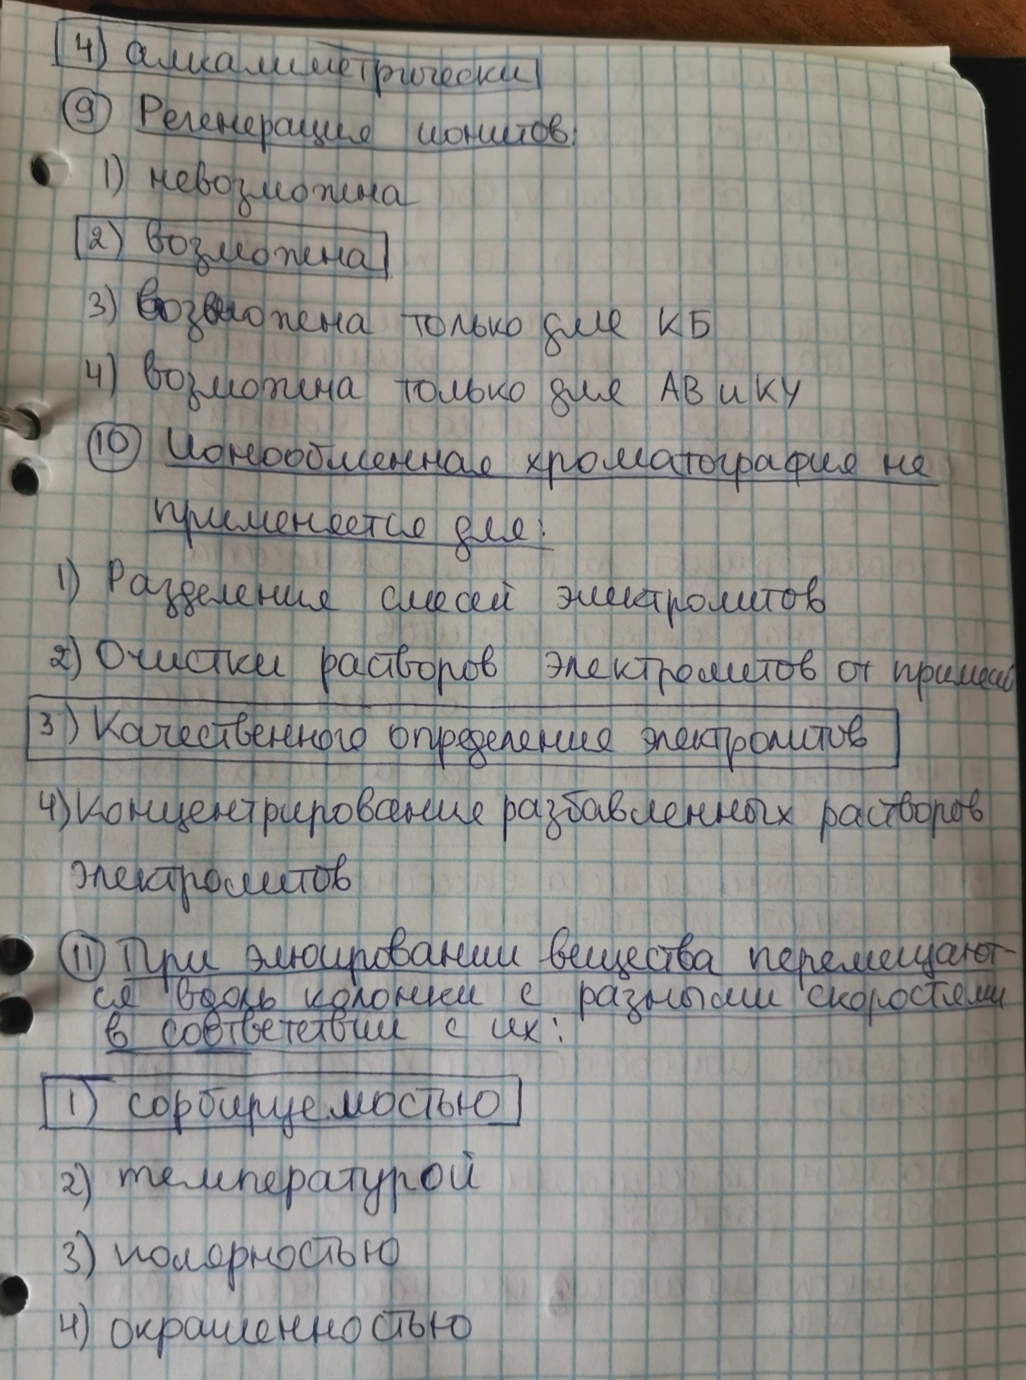 4) алкалиметрически
9 Регенерация ионитов:
1) невозможна
2) возможна
3) возможна только для КБ
4) возможна только для АВ и КУ
10 Ионообменная хроматография не
применяется для:
1) Разделения смесей электролитов
2) Очистки растворов электролитов от примесей
3) Качественного определения электролитов
4) Концентрирование разбавленных растворов
электролитов
11 При элюировании вещества перемещают-
ся вдоль колонки с разными скоростями
в соответствии с их:
1) сорбируемостью
2) температурой
3) полярностью
4) окрашенностью